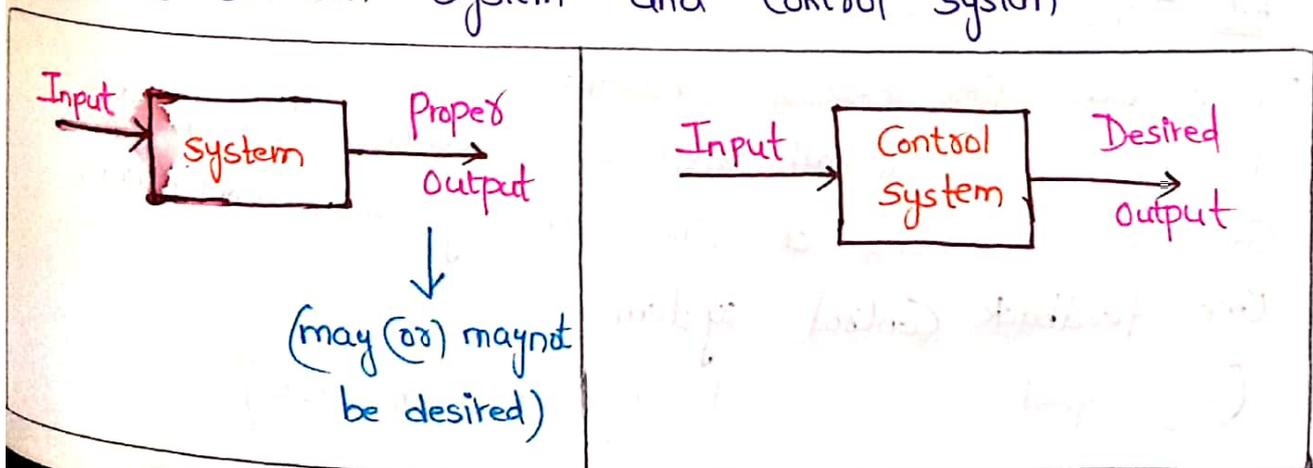 System and Control System
Input
system
Proper
output
(may (or) maynot
be desired)
Input
Control
system
Desired
output